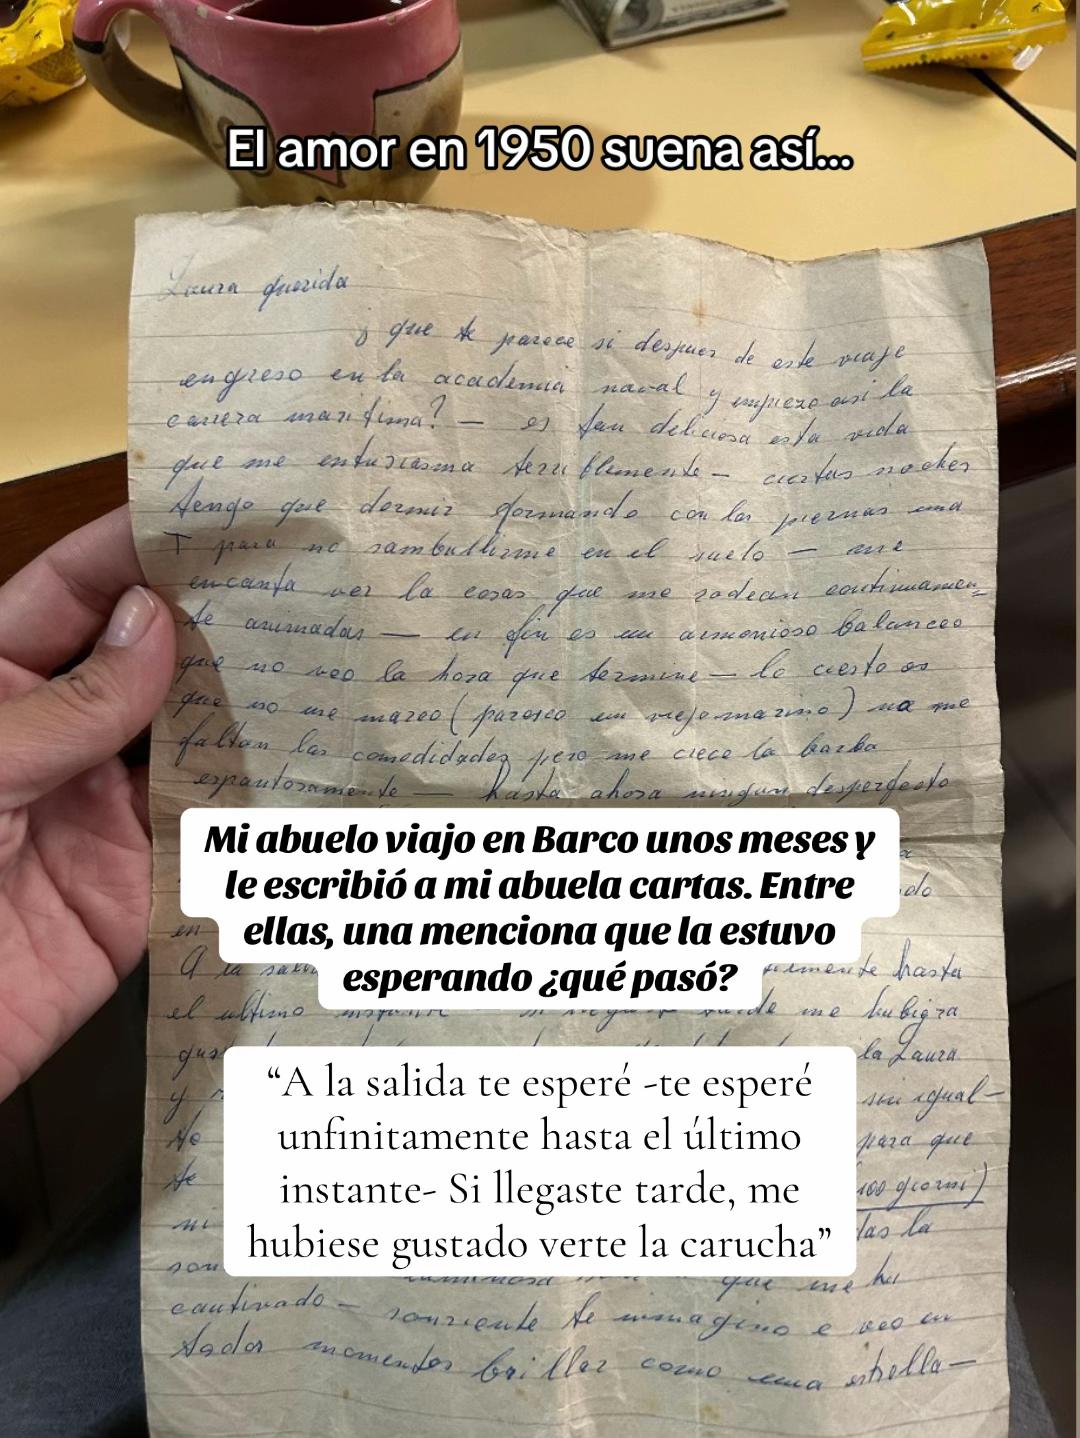 El amor en 1950 suena así...
Laura querida
¿ que te parece si despues de este viaje
engreso en la academia naval y empiezo asi la
carrera maritima? — es tan deliciosa esta vida
que me entusiasma terriblemente — ciertas noches
tengo que dormir formando con las piernas una
T para no sambullirme en el suelo — me
encanta ver la cosas que me rodean continuamen=
te animadas — en fin es un armonioso balanceo
que no veo la hora que termine — lo cierto es
que no me mareo ( paresco un viejo marino ) no me
faltan las comodidades pero me crece la barba
espantosamente — hasta ahora ningun desperfecto
Mi abuelo viajo en Barco unos meses y
le escribió a mi abuela cartas. Entre
ellas, una menciona que la estuvo
esperando ¿qué pasó?
do
en
A la hasta
el ultimo me hubiera
la Laura
y sin igual —
te para que
te 100 giorni)
ni la
son que me ha
cautivado — sonriente te immagino e veo en
todos momentos brillar como una estrella —
“A la salida te esperé -te esperé
unfinitamente hasta el último
instante- Si llegaste tarde, me
hubiese gustado verte la carucha”